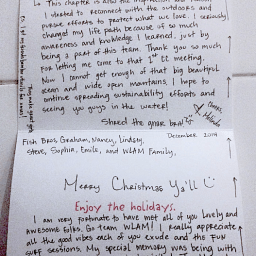 ↳ This chapter is also the
I started to reconnect with the outdoors and
pursue efforts to protect what we love. Seriously,
changed my life path because of so much
awareness and knowledge I learned, just by
being a part of this team. Thank you so much
for letting me come to that 1st EC meeting,
Now I cannot get enough of that big beautiful
ocean and wide open mountains. I hope to
continue spreading sustainability efforts and
seeing you guys in the water!
Shred the gnar
December 2019
Fish Bros, Graham, Nancy, Lindsey,
Steve, Sophia, Emile, and WLAM Family,
Merry Christmas Ya'll ☺
Enjoy the holidays.
I am very fortunate to have met all of you lovely and
awesome folks. Go team WLAM! I really appreciate
all the good vibes each of you exude and the FUN
surf sessions. My special memory was being with